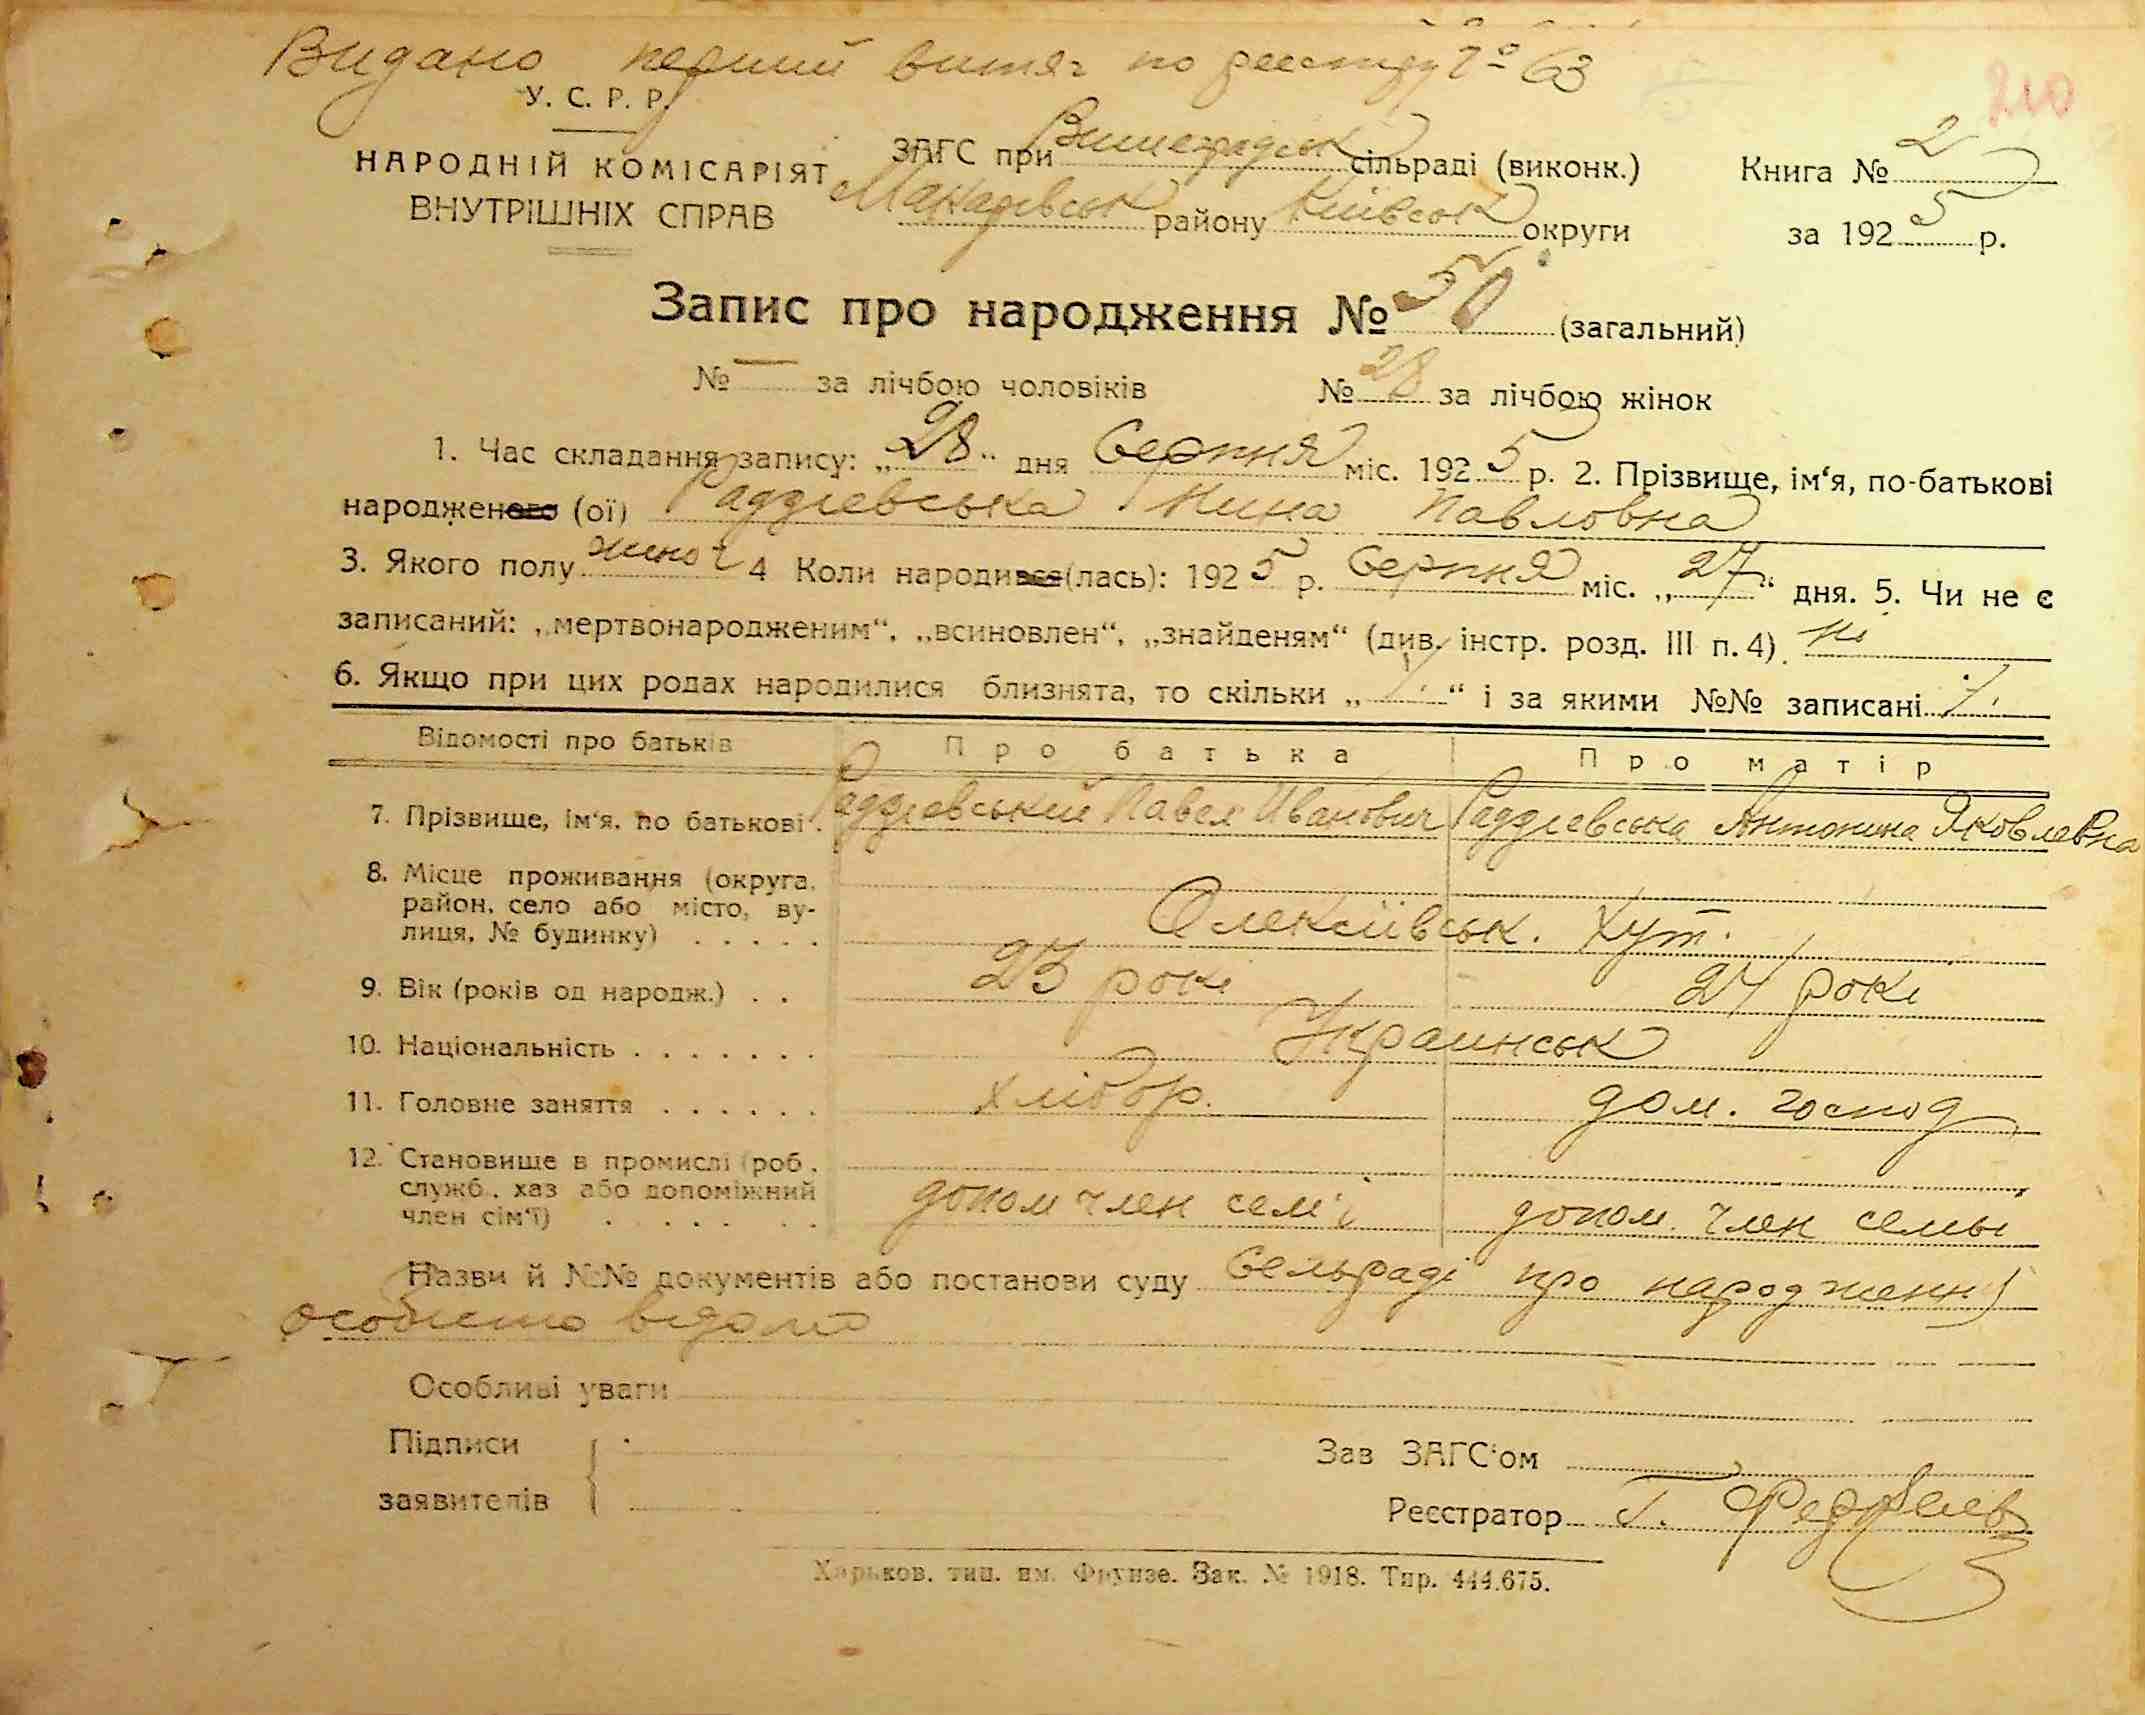 Видано перший витяг по реєстру № 63
210
У. С. Р. Р.
НАРОДНІЙ КОМІСАРІЯТ
ВНУТРІШНІХ СПРАВ
ЗАГС при Вишеградськ сільраді (виконк.)
Макарівськ району Київськ округи
Книга № 2
за 1925 р.
Запис про народження № 50 (загальний)
№ — за лічбою чоловіків № 28 за лічбою жінок
1. Час складання запису: „28" дня Серпня міс. 1925 р. 2. Прізвище, ім'я, по-батькові
народженого (ої) Раддіевська Нина Павловна
3. Якого полу жіноч 4 Коли народився (лась): 1925 р. Серпня міс. „27" дня. 5. Чи не є
записаний: „мертвонародженим", „всиновлен", „знайденям" (див. інстр. розд. III п. 4). ні
6. Якщо при цих родах народилися близнята, то скільки „ " і за якими №№ записані
Відомості про батьків Про батька Про матір
7. Прізвище, ім'я, по батькові. Раддіевський Павел Иванович Раддіевська Антонина Яковлевна
8. Місце проживання (округа,
район, село або місто, ву-
лиця, № будинку) . . . . . Олексіївськ. хут.
9. Вік (років од народж.) . . 23 рокі 24 рокі
10. Національність . . . . . . . Украинськ
11. Головне заняття . . . . . . хлібор. дом. господ
12. Становище в промислі (роб.,
служб., хаз або допоміжний
член сім'ї) . . . . . . . допом член семі допом. член семьі
Назви й №№ документів або постанови суду Сельраді про народженн
особисто відомо
Особливі уваги
Підписи
заявителів
Зав ЗАГС'ом
Реєстратор Т.
Харьков. тип. им. Фрунзе. Зак. № 1918. Тир. 444.675.